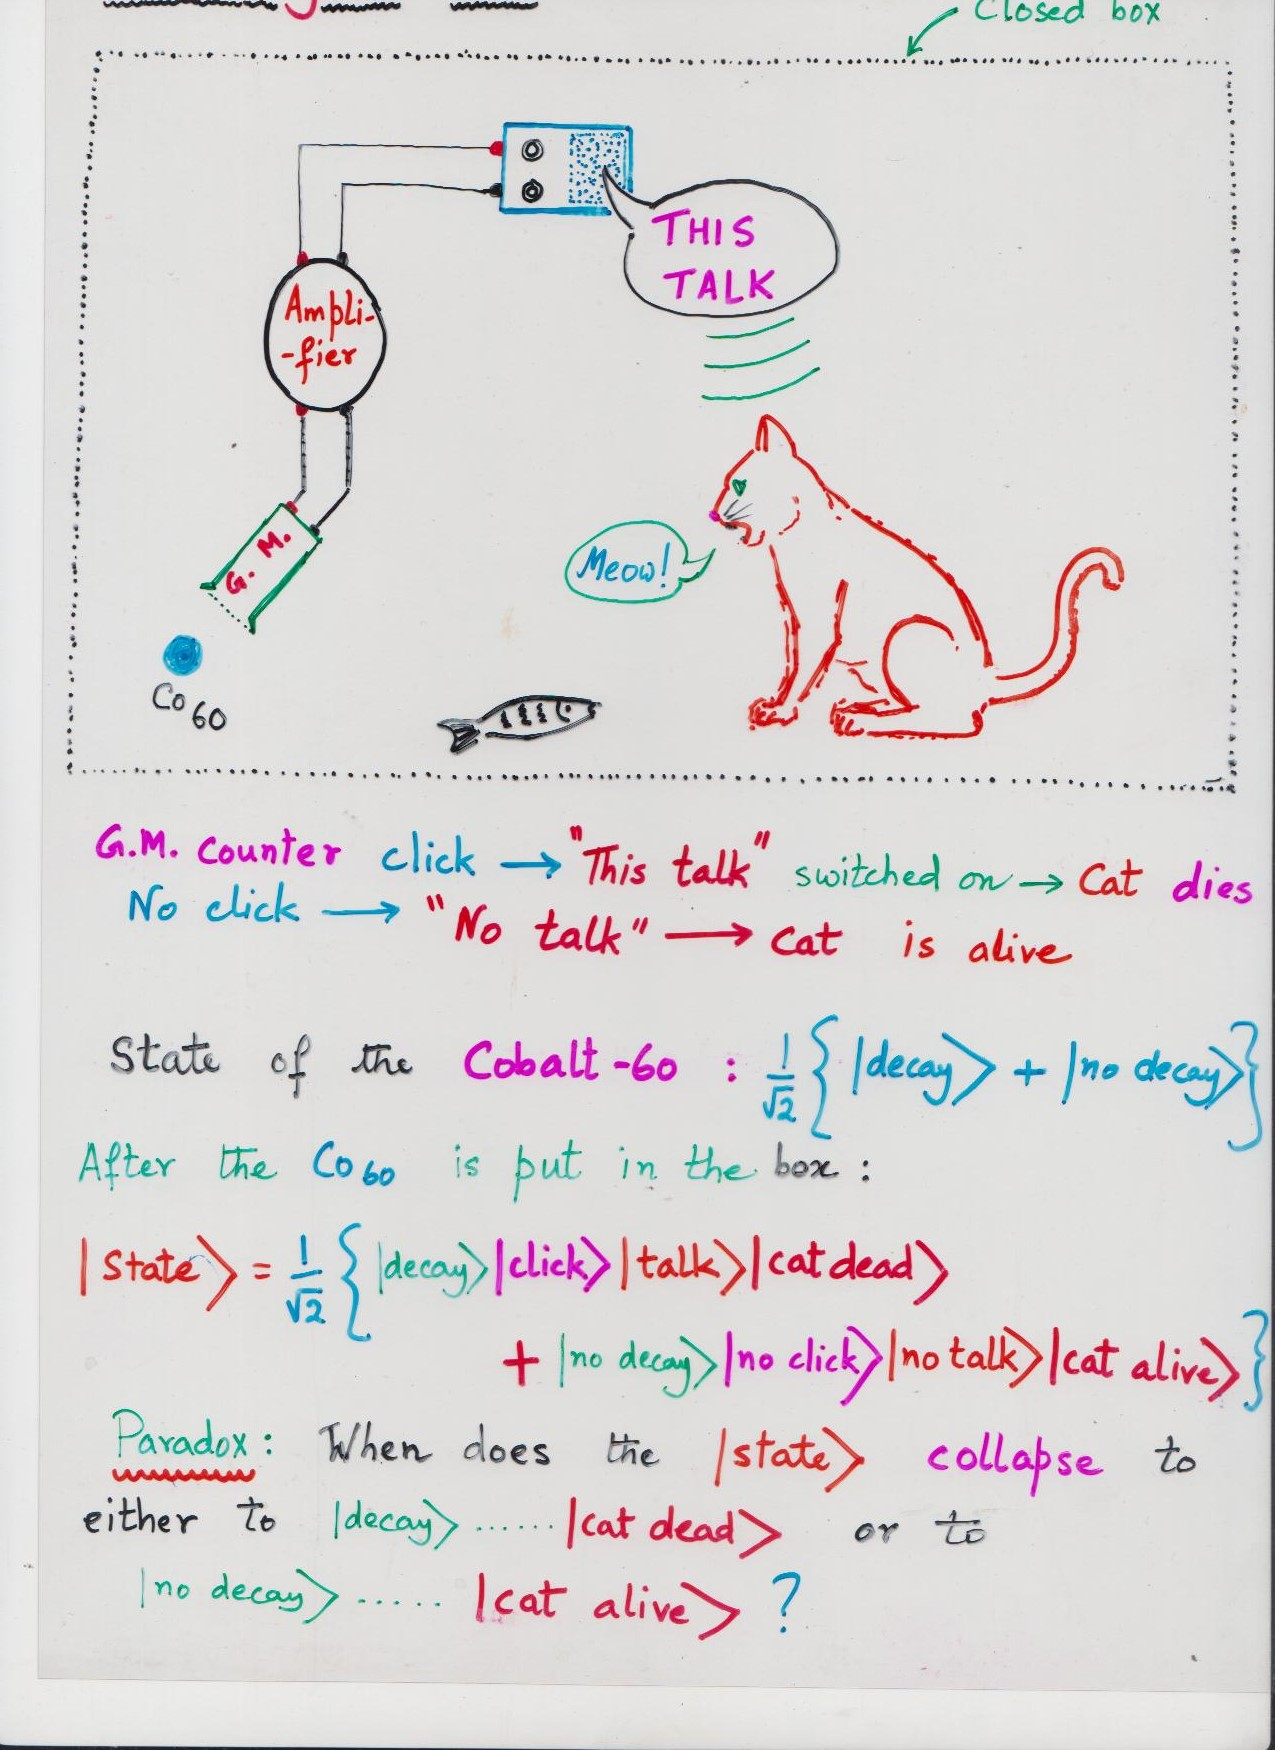 Closed box
THIS
TALK
Ampli-
-fier
G. M.
Meow!
Co 60
G.M. counter click → "This talk" switched on → Cat dies
No click → "No talk" → cat is alive
State of the Cobalt-60 : 1/√2 { |decay⟩ + |no decay⟩ }
After the Co 60 is put in the box :
|state⟩ = 1/√2 { |decay⟩|click⟩|talk⟩|cat dead⟩
+ |no decay⟩|no click⟩|no talk⟩|cat alive⟩ }
Paradox : When does the |state⟩ collapse to
either to |decay⟩ ...... |cat dead⟩ or to
|no decay⟩ ..... |cat alive⟩ ?